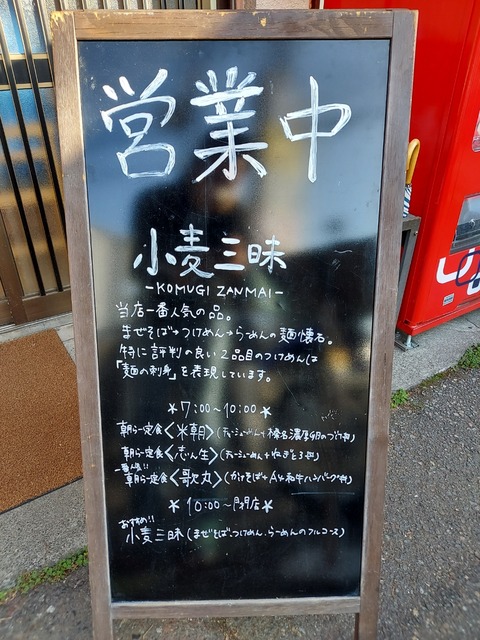 営業中
小麦三昧
-KOMUGI ZANMAI-
当店一番人気の品。
まぜそば→つけめん→らーめんの麺懐石。
特に評判の良い2品目のつけめんは
「麺の刺身」を表現しています。
*7:00~10:00*
朝らー定食〈米朝〉(チャーシューめん+榛名濃厚卵のづけ丼)
朝らー定食〈志ん生〉(チャーシューめん+ねぎとろ丼)
一番人気!!
朝らー定食〈歌丸〉(かけそば+A4和牛ハンバーグ丼)
*10:00~閉店*
おすすめ!!
小麦三昧(まぜそば、つけめん、らーめんのフルコース)